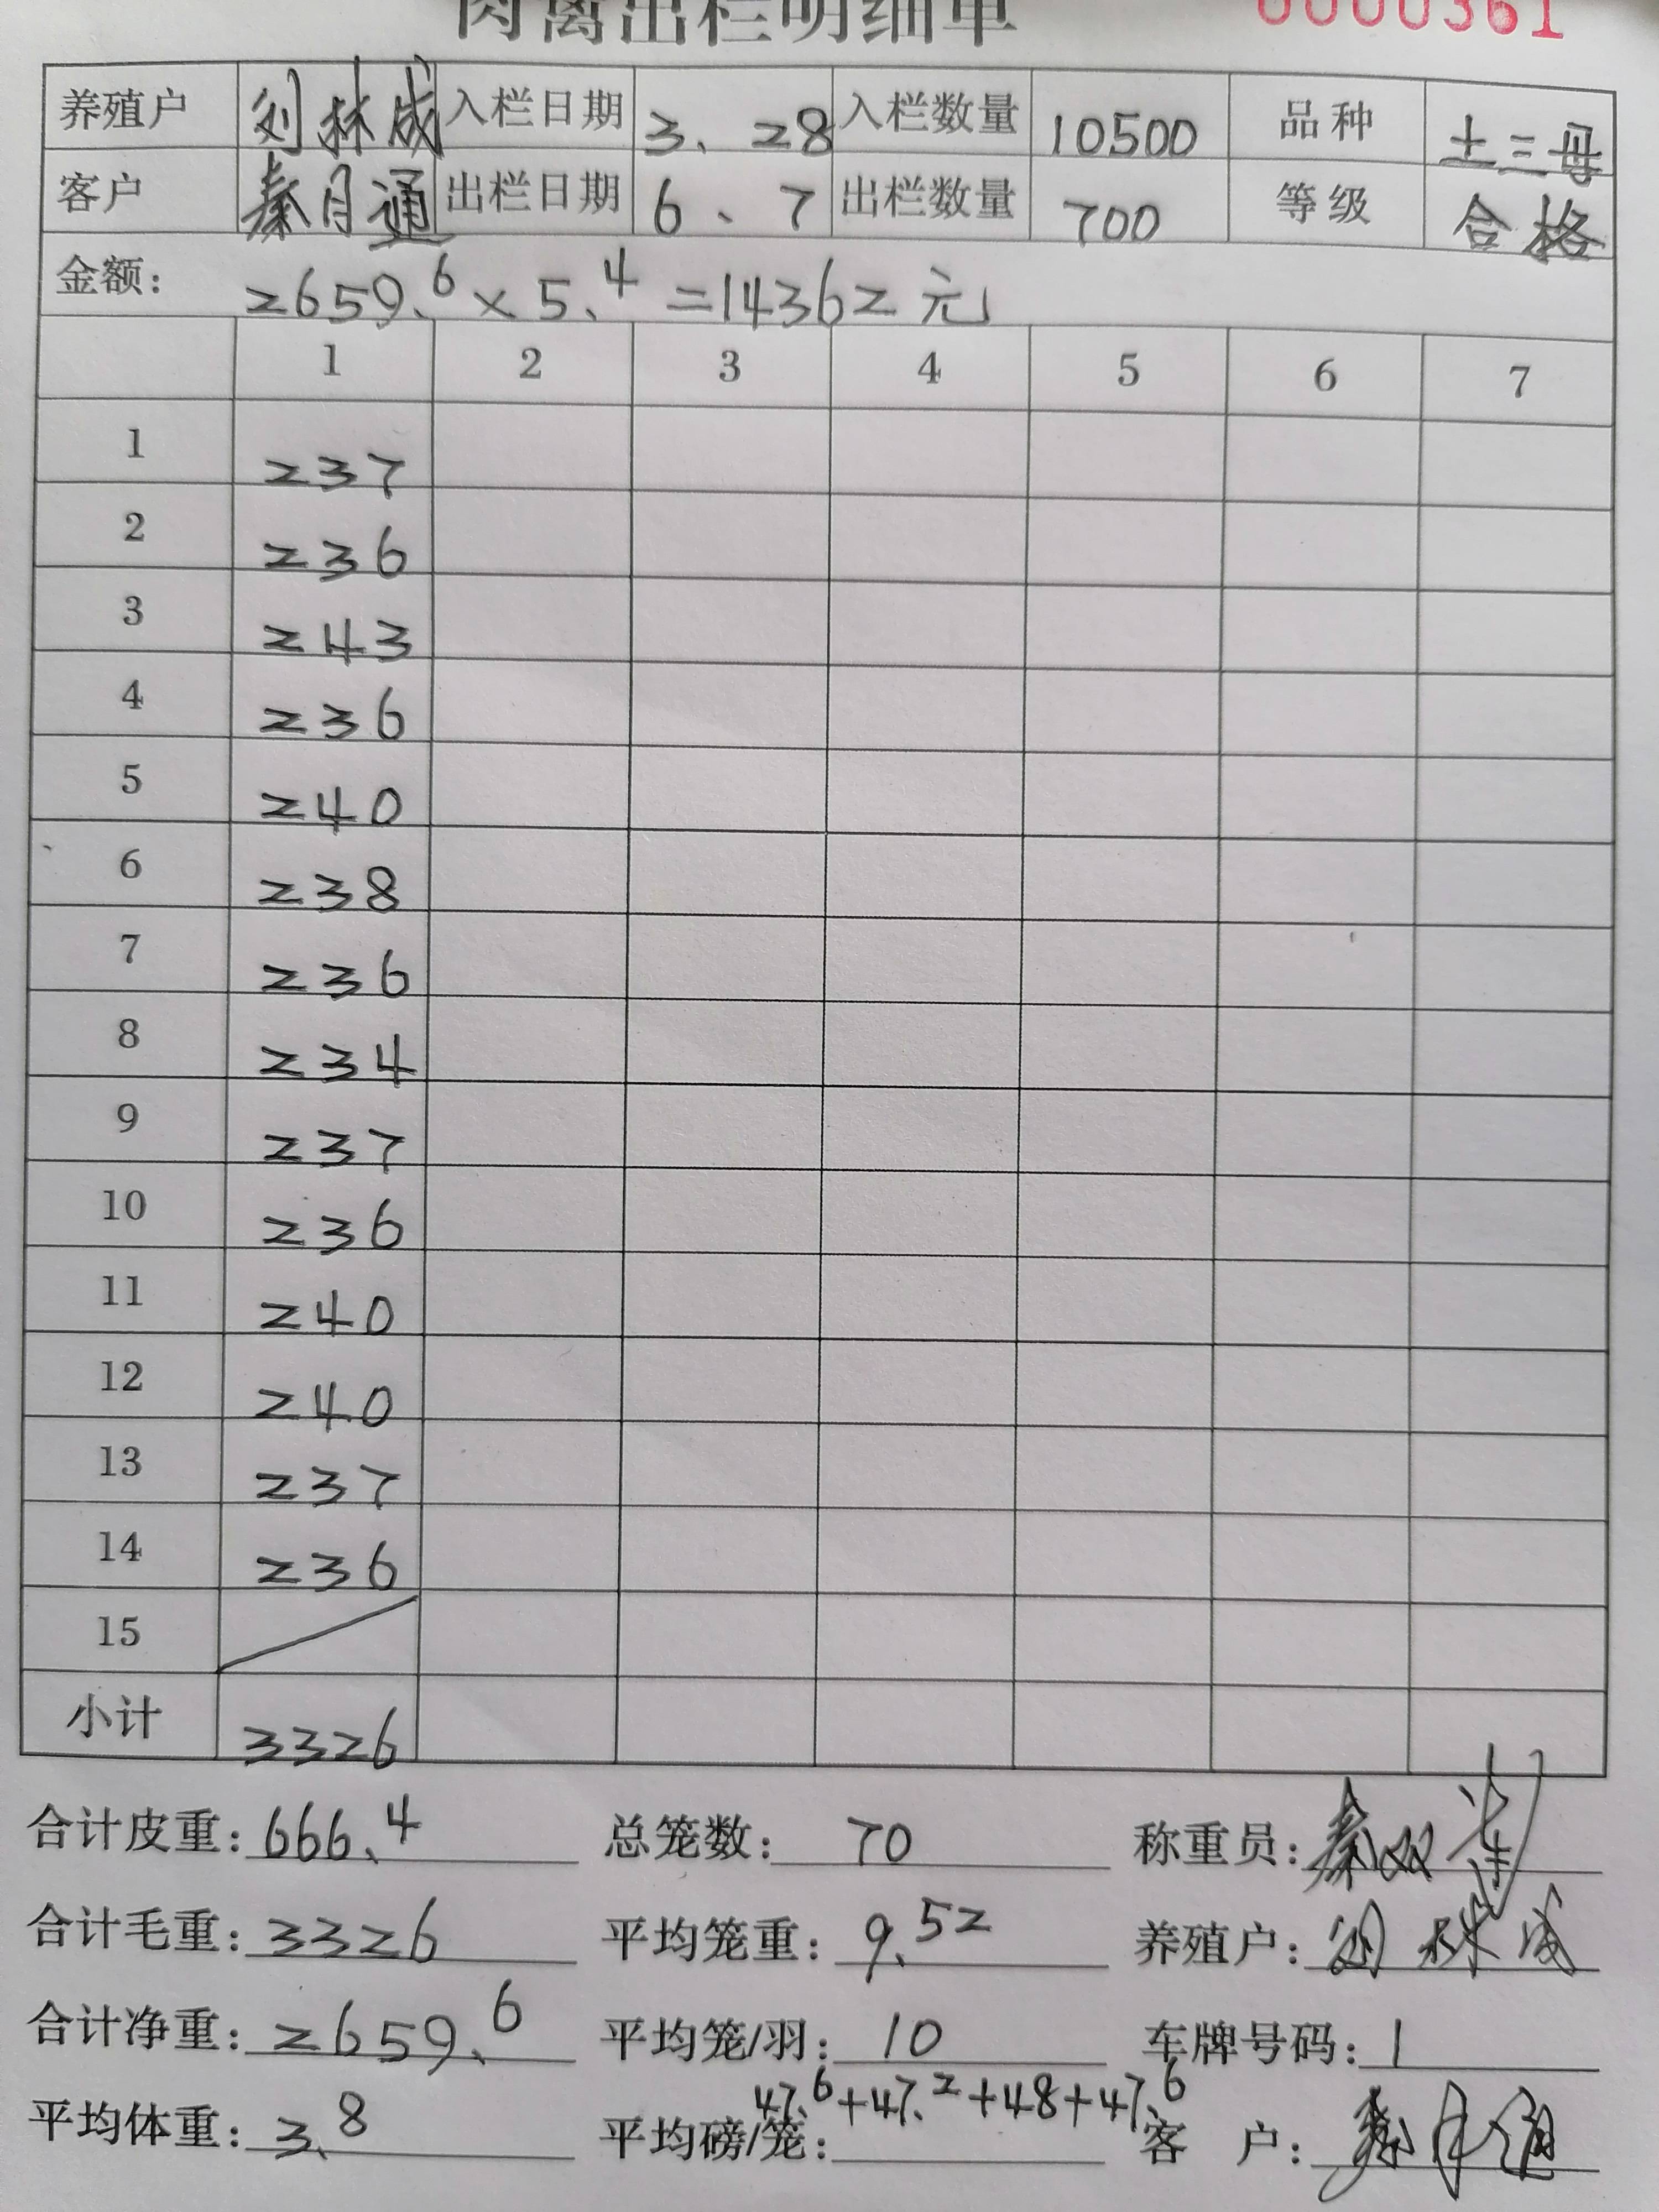 肉禽出栏明细单 0000361
养殖户 刘林成 入栏日期 3、28 入栏数量 10500 品种 土三母
客户 秦月通 出栏日期 6、7 出栏数量 700 等级 合格
金额: 2659.6×5.4=14362元
1 2 3 4 5 6 7
1 237
2 236
3 243
4 236
5 240
6 238
7 236
8 234
9 237
10 236
11 240
12 240
13 237
14 236
15
小计 3326
合计皮重: 666.4 总笼数: 70 称重员: 秦双
合计毛重: 3326 平均笼重: 9.52 养殖户: 刘林成
合计净重: 2659.6 平均笼/羽: 10 车牌号码: 1
47.6+47.2+48+47.6
平均体重: 3.8 平均磅/笼: 客 户: 秦月通